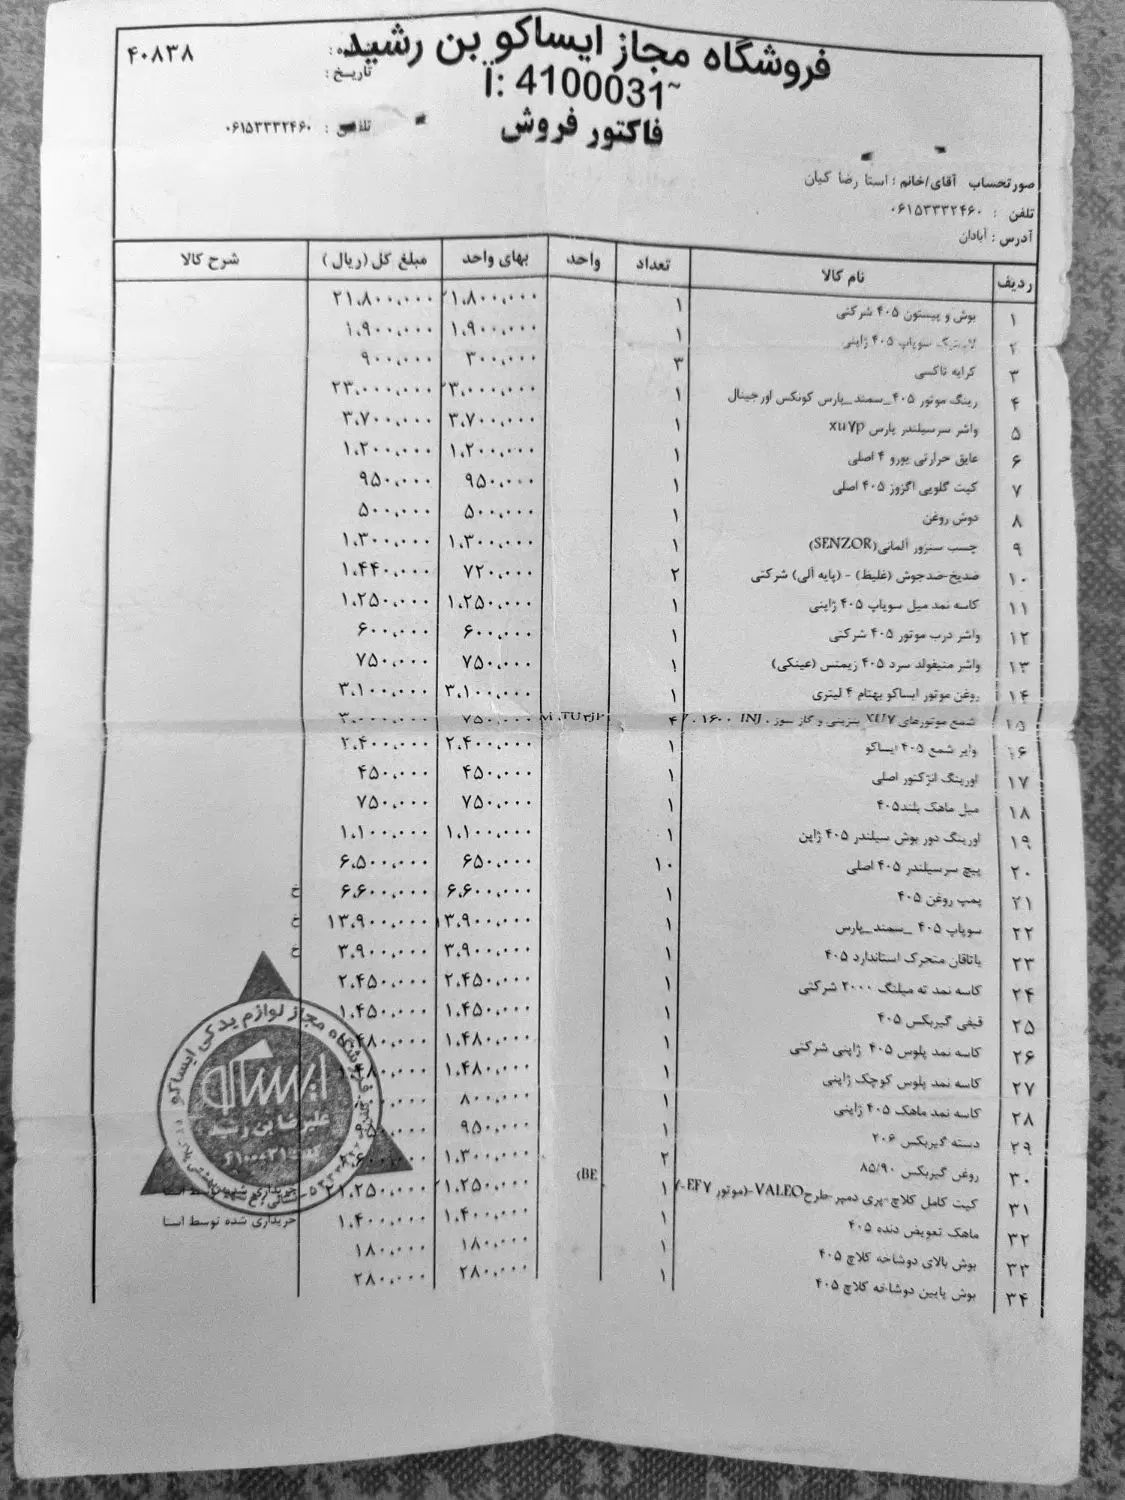 فروشگاه مجاز ایساکو بن رشید
۴۰۸۳۸
تاریخ :
آ: 4100031~
فاکتور فروش
تلفن : ۰۶۱۵۳۳۳۲۴۶۰
صورتحساب آقای/خانم : استا رضا کیان
تلفن : ۰۶۱۵۳۳۳۲۴۶۰
آدرس : آبادان
ردیف نام کالا تعداد واحد بهای واحد مبلغ کل (ریال) شرح کالا
۱ بوش و پیستون ۴۰۵ شرکتی ۱ ۲۱،۸۰۰،۰۰۰ ۲۱،۸۰۰،۰۰۰
۲ لاستیک سوپاپ ۴۰۵ ژاپنی ۱ ۱،۹۰۰،۰۰۰ ۱،۹۰۰،۰۰۰
۳ کرایه تاکسی ۳ ۳۰۰،۰۰۰ ۹۰۰،۰۰۰
۴ رینگ موتور ۴۰۵_سمند_پارس کونکس اورجینال ۱ ۲۳،۰۰۰،۰۰۰ ۲۳،۰۰۰،۰۰۰
۵ واشر سرسیلندر پارس xu۷p ۱ ۳،۷۰۰،۰۰۰ ۳،۷۰۰،۰۰۰
۶ عایق حرارتی یورو ۴ اصلی ۱ ۱،۲۰۰،۰۰۰ ۱،۲۰۰،۰۰۰
۷ کیت گلویی اگزوز ۴۰۵ اصلی ۱ ۹۵۰،۰۰۰ ۹۵۰،۰۰۰
۸ دوش روغن ۱ ۵۰۰،۰۰۰ ۵۰۰،۰۰۰
۹ چسب سنزور آلمانی(SENZOR) ۱ ۱،۳۰۰،۰۰۰ ۱،۳۰۰،۰۰۰
۱۰ ضدیخ-ضدجوش (غلیظ) - (پایه آلی) شرکتی ۲ ۷۲۰،۰۰۰ ۱،۴۴۰،۰۰۰
۱۱ کاسه نمد میل سوپاپ ۴۰۵ ژاپنی ۱ ۱،۲۵۰،۰۰۰ ۱،۲۵۰،۰۰۰
۱۲ واشر درب موتور ۴۰۵ شرکتی ۱ ۶۰۰،۰۰۰ ۶۰۰،۰۰۰
۱۳ واشر منیفولد سرد ۴۰۵ زیمنس (عینکی) ۱ ۷۵۰،۰۰۰ ۷۵۰،۰۰۰
۱۴ روغن موتور ایساکو بهتام ۴ لیتری ۱ ۳،۱۰۰،۰۰۰ ۳،۱۰۰،۰۰۰
۱۵ شمع موتورهای XU۷ بنزینی و گاز سوز ۴ ۷۵۰،۰۰۰ ۳،۰۰۰،۰۰۰
۱۶ وایر شمع ۴۰۵ ایساکو ۱ ۲،۴۰۰،۰۰۰ ۲،۴۰۰،۰۰۰
۱۷ اورینگ انژکتور اصلی ۱ ۴۵۰،۰۰۰ ۴۵۰،۰۰۰
۱۸ میل ماهک بلند۴۰۵ ۱ ۷۵۰،۰۰۰ ۷۵۰،۰۰۰
۱۹ اورینگ دور بوش سیلندر ۴۰۵ ژاپن ۱ ۱،۱۰۰،۰۰۰ ۱،۱۰۰،۰۰۰
۲۰ پیچ سرسیلندر ۴۰۵ اصلی ۱۰ ۶۵۰،۰۰۰ ۶،۵۰۰،۰۰۰
۲۱ پمپ روغن ۴۰۵ ۱ ۶،۶۰۰،۰۰۰ ۶،۶۰۰،۰۰۰ خ
۲۲ سوپاپ ۴۰۵ _سمند_پارس ۱ ۱۳،۹۰۰،۰۰۰ ۱۳،۹۰۰،۰۰۰ خ
۲۳ یاتاقان متحرک استاندارد ۴۰۵ ۱ ۳،۹۰۰،۰۰۰ ۳،۹۰۰،۰۰۰ خ
۲۴ کاسه نمد ته میلنگ ۲۰۰۰ شرکتی ۱ ۲،۴۵۰،۰۰۰ ۲،۴۵۰،۰۰۰
۲۵ قیفی گیربکس ۴۰۵ ۱ ۱،۴۵۰،۰۰۰ ۱،۴۵۰،۰۰۰
۲۶ کاسه نمد پلوس ۴۰۵ ژاپنی شرکتی ۱ ۱،۴۸۰،۰۰۰
۲۷ کاسه نمد پلوس کوچک ژاپنی ۱ ۱،۴۸۰،۰۰۰
۲۸ کاسه نمد ماهک ۴۰۵ ژاپنی ۱ ۸۰۰،۰۰۰
۲۹ دسته گیربکس ۲۰۶ ۱ ۹۵۰،۰۰۰ ۹۵۰،۰۰۰
۳۰ روغن گیربکس ۸۵/۹۰ ۲ ۱،۳۰۰،۰۰۰ ۲،۶۰۰،۰۰۰
۳۱ کیت کامل کلاچ-پری دمپر-طرحVALEO-(موتور EF۷-) ۱ ۲۱،۲۵۰،۰۰۰ ۲۱،۲۵۰،۰۰۰ خریداری شده توسط استا
۳۲ ماهک تعویض دنده ۴۰۵ ۱ ۱،۴۰۰،۰۰۰ ۱،۴۰۰،۰۰۰ خریداری شده توسط استا
۳۳ بوش بالای دوشاخه کلاچ ۴۰۵ ۱ ۱۸۰،۰۰۰ ۱۸۰،۰۰۰
۳۴ بوش پایین دوشاخه کلاچ ۴۰۵ ۱ ۲۸۰،۰۰۰ ۲۸۰،۰۰۰
فروشگاه مجاز لوازم یدکی ایساکو
ایساکو
علیرضا بن رشید